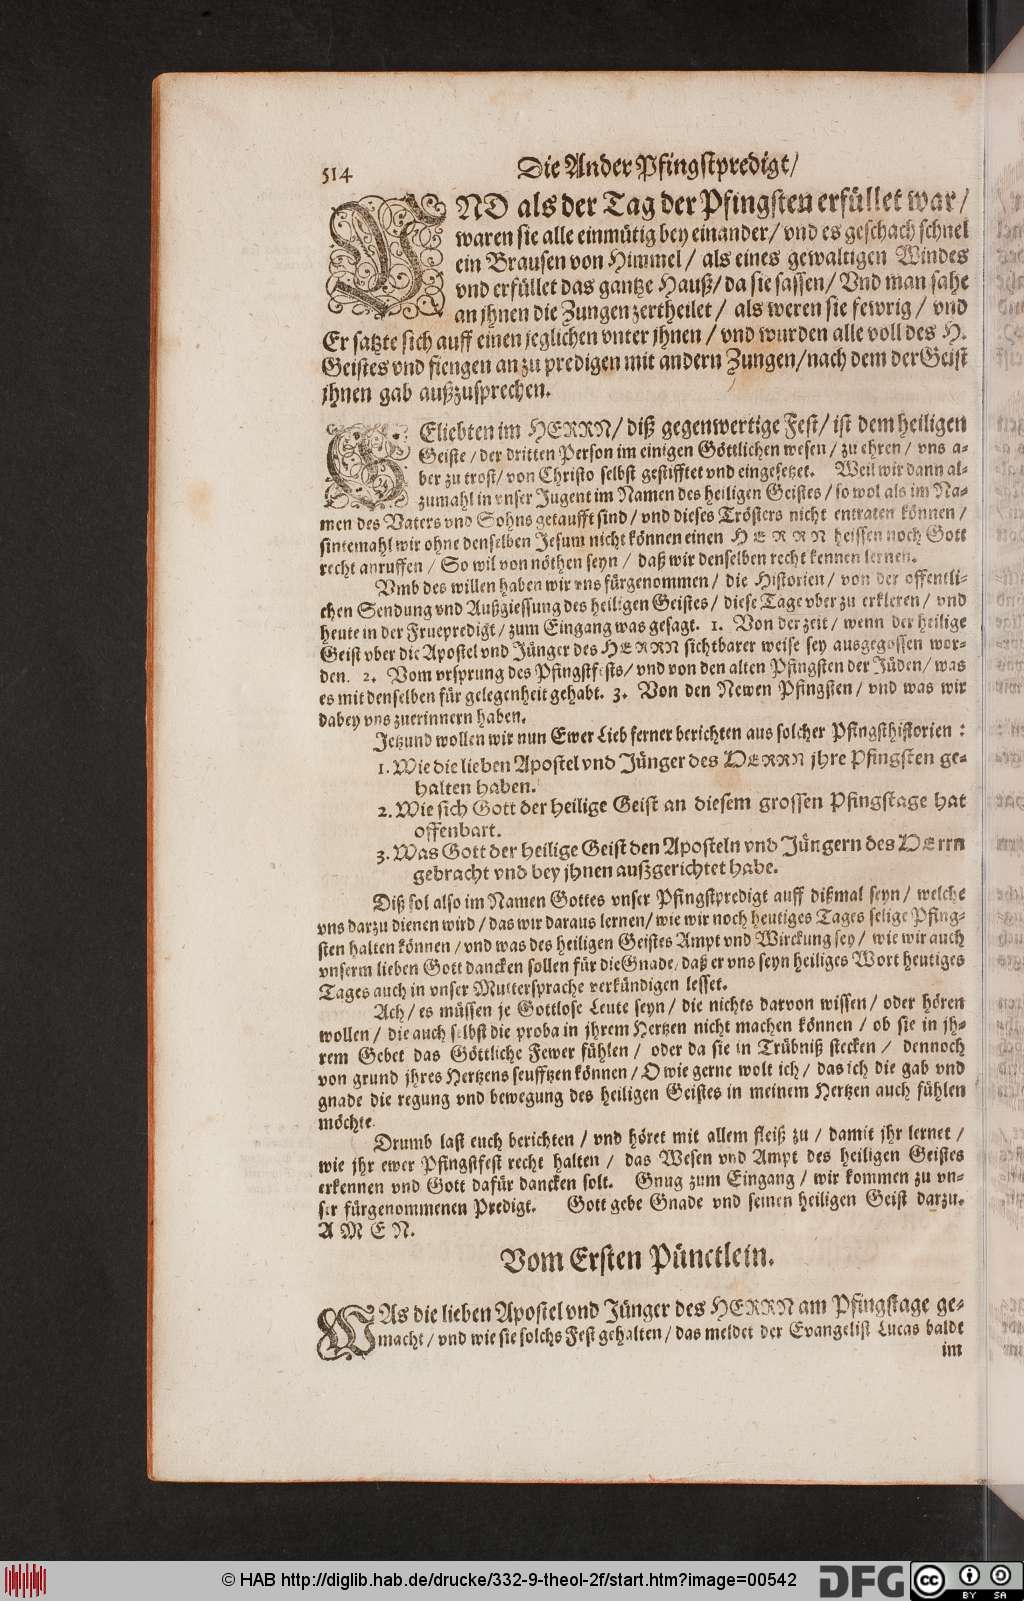 514 Die Ander Pfingstpredigt/
VND als der Tag der Pfingsten erfüllet war/
waren sie alle einmütig bey einander/ vnd es geschach schnel
ein Brausen von Himmel/ als eines gewaltigen Windes
vnd erfüllet das gantze Hauß/ da sie sassen/ Vnd man sahe
an jhnen die Zungen zertheilet/ als weren sie fewrig/ vnd
Er satzte sich auff einen jeglichen vnter jhnen/ vnd wurden alle voll des H.
Geistes vnd fiengen an zu predigen mit andern Zungen/ nach dem der Geist
jhnen gab außzusprechen.
GEliebten im HERRN/ diß gegenwertige Fest/ ist dem heiligen
Geiste/ der dritten Person im einigen Göttlichen wesen/ zu ehren/ vns a-
ber zu trost/ von Christo selbst gestifftet vnd eingesetzet. Weil wir dann al-
zumahl in vnser Jugent im Namen des heiligen Geistes/ so wol als im Na-
men des Vaters vnd Sohns getaufft sind/ vnd dieses Trösters nicht entraten können/
sintemahl wir ohne denselben Jesum nicht können einen HERRN heissen noch Gott
recht anruffen/ So wil von nöthen seyn/ daß wir denselben recht kennen lernen.
Vmb des willen haben wir vns fürgenommen/ die Historien/ von der offentli-
chen Sendung vnd Außgiessung des heiligen Geistes/ diese Tage vber zu erkleren/ vnd
heute in der Fruepredigt/ zum Eingang was gesagt. 1. Von der zeit/ wenn der heilige
Geist vber die Apostel vnd Jünger des HERRN sichtbarer weise sey ausgegossen wor-
den. 2. Vom vrsprung des Pfingstfests/ vnd von den alten Pfingsten der Jüden/ was
es mit denselben für gelegenheit gehabt. 3. Von den Newen Pfingsten/ vnd was wir
dabey vns zuerinnern haben.
Jetzund wollen wir nun Ewer Lieb ferner berichten aus solcher Pfingsthistorien:
1. Wie die lieben Apostel vnd Jünger des HERRN jhre Pfingsten ge-
halten haben.
2. Wie sich Gott der heilige Geist an diesem grossen Pfingstage hat
offenbart.
3. Was Gott der heilige Geist den Aposteln vnd Jüngern des HErrn
gebracht vnd bey jhnen außgerichtet habe.
Diß sol also im Namen Gottes vnser Pfingstpredigt auff dißmal seyn/ welche
vns darzu dienen wird/ das wir daraus lernen/ wie wir noch heutiges Tages selige Pfing-
sten halten können/ vnd was des heiligen Geistes Ampt vnd Wirckung sey/ wie wir auch
vnserm lieben Gott dancken sollen für die Gnade/ daß er vns seyn heiliges Wort heutiges
Tages auch in vnser Muttersprache verkündigen lesset.
Ach/ es müssen je Gottlose Leute seyn/ die nichts darvon wissen/ oder hören
wollen/ die auch selbst die proba in jhrem Hertzen nicht machen können/ ob sie in jh-
rem Gebet das Göttliche Fewer fühlen/ oder da sie in Trübniß stecken/ dennoch
von grund jhres Hertzens seufftzen können/ O wie gerne wolt ich/ das ich die gab vnd
gnade die regung vnd bewegung des heiligen Geistes in meinem Hertzen auch fühlen
möchte.
Drumb last euch berichten/ vnd höret mit allem fleiß zu/ damit jhr lernet/
wie jhr ewer Pfingstfest recht halten/ das Wesen vnd Ampt des heiligen Geistes
erkennen vnd Gott dafür dancken solt. Gnug zum Eingang/ wir kommen zu vn-
ser fürgenommenen Predigt. Gott gebe Gnade vnd seinen heiligen Geist darzu.
AMEN.
Vom Ersten Pünctlein.
WAs die lieben Apostel vnd Jünger des HERRN am Pfingstage ge-
macht/ vnd wie sie solchs Fest gehalten/ das meldet der Evangelist Lucas baldt
im
© HAB http://diglib.hab.de/drucke/332-9-theol-2f/start.htm?image=00542
DFG
cc BY SA